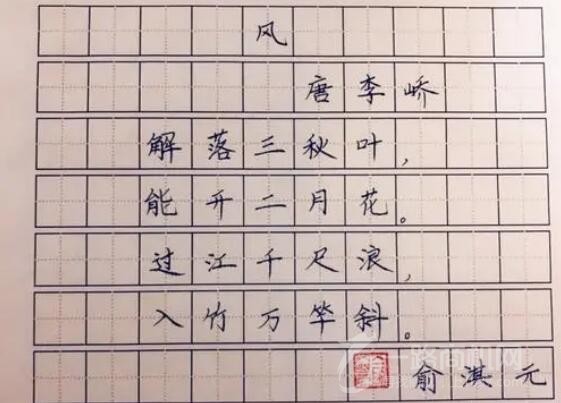 风
唐李峤
解落三秋叶，
能开二月花。
过江千尺浪，
入竹万竿斜。
俞淇元